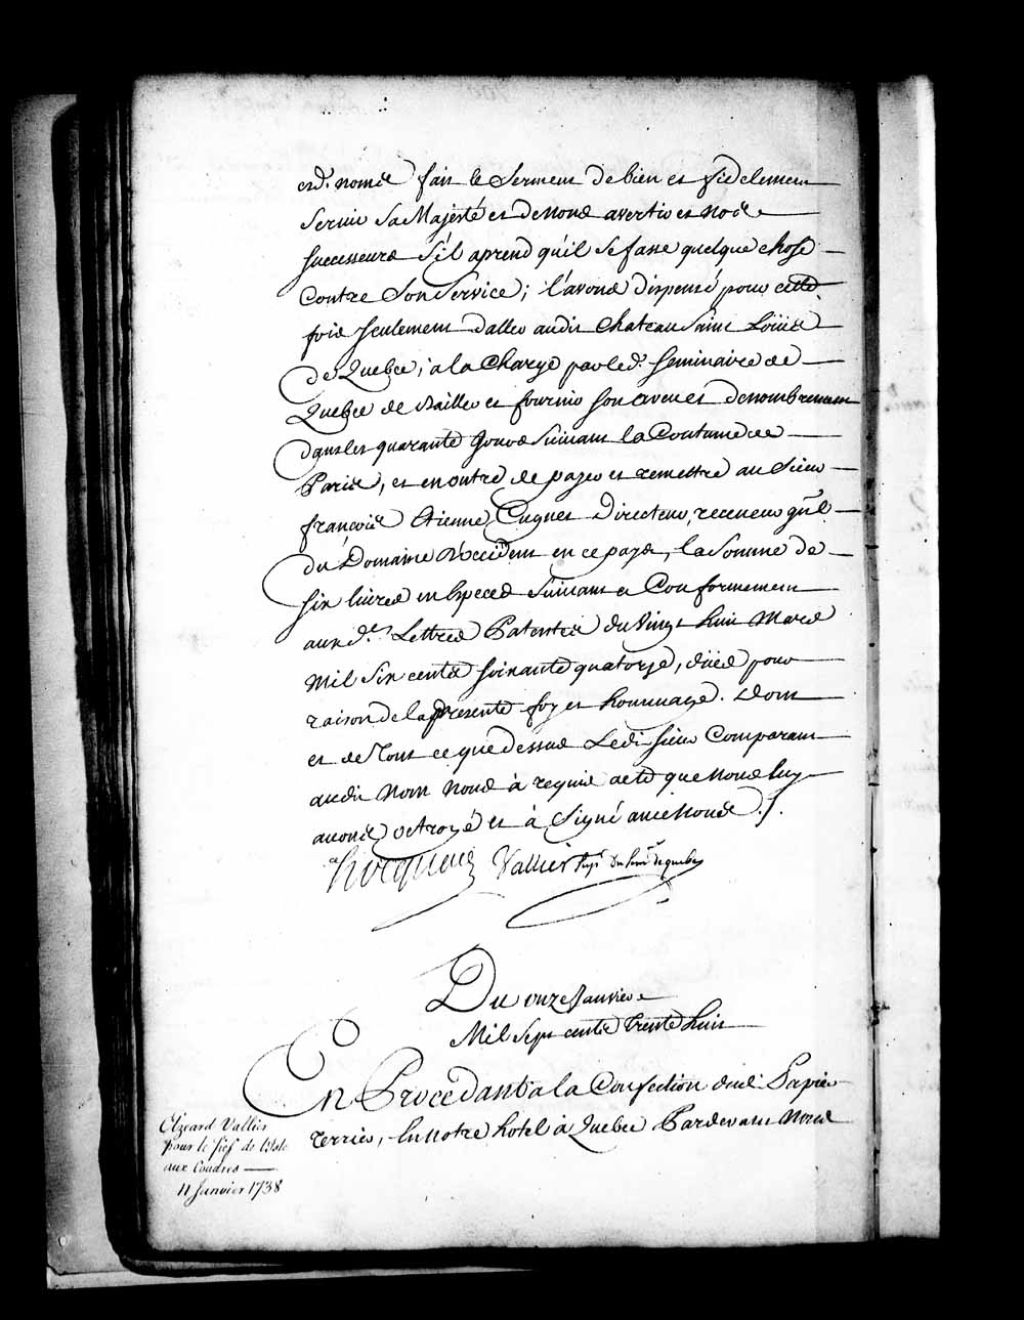 esd. noms fait le Serment de bien et fidelement
Servir Sa Majesté et de nous avertir et nos
Successeurs S'il aprend qu'il Se fasse quelque chose
Contre Son Service; l'avons dispensé pour cette
fois Seulement d'aller audit Chateau Saint Loüis
de Quebec; a la Charge par led. Seminaire de
Quebec de Bailler et fournir Son aveu et denombrement
dans les quarante Jours Suivant la Coutume de
Paris, et en outre de payer et remettre au Sieur
françois Etienne Cugnet Directeur, receveur gnãl
du Domaine d'occident en ce pays, la Somme de
Six livres en Especes Suivant et Conformement
aux d.es Lettres Patentes du Vingt huit Mars
Mil Six cents Soixante quatorze, düe pour
raison de la presente foy et hommage. Dont
et de Tout ce que dessus Ledit Sieur Comparant
audit Nom Nous à requis acte que Nous luy
avons octroyé et à Signé avec Nous ./.
hocquart Vallier sup.r du sem.re de quebec
Du onze Janvier
Mil Sept cents Trente huit
En Procedant a la Confection dud. Papier
Terrier, En notre hotel à Quebec Pardevant Nous
Elzeard Vallier
pour le fief de l'Isle
aux Coudres
11 Janvier 1738